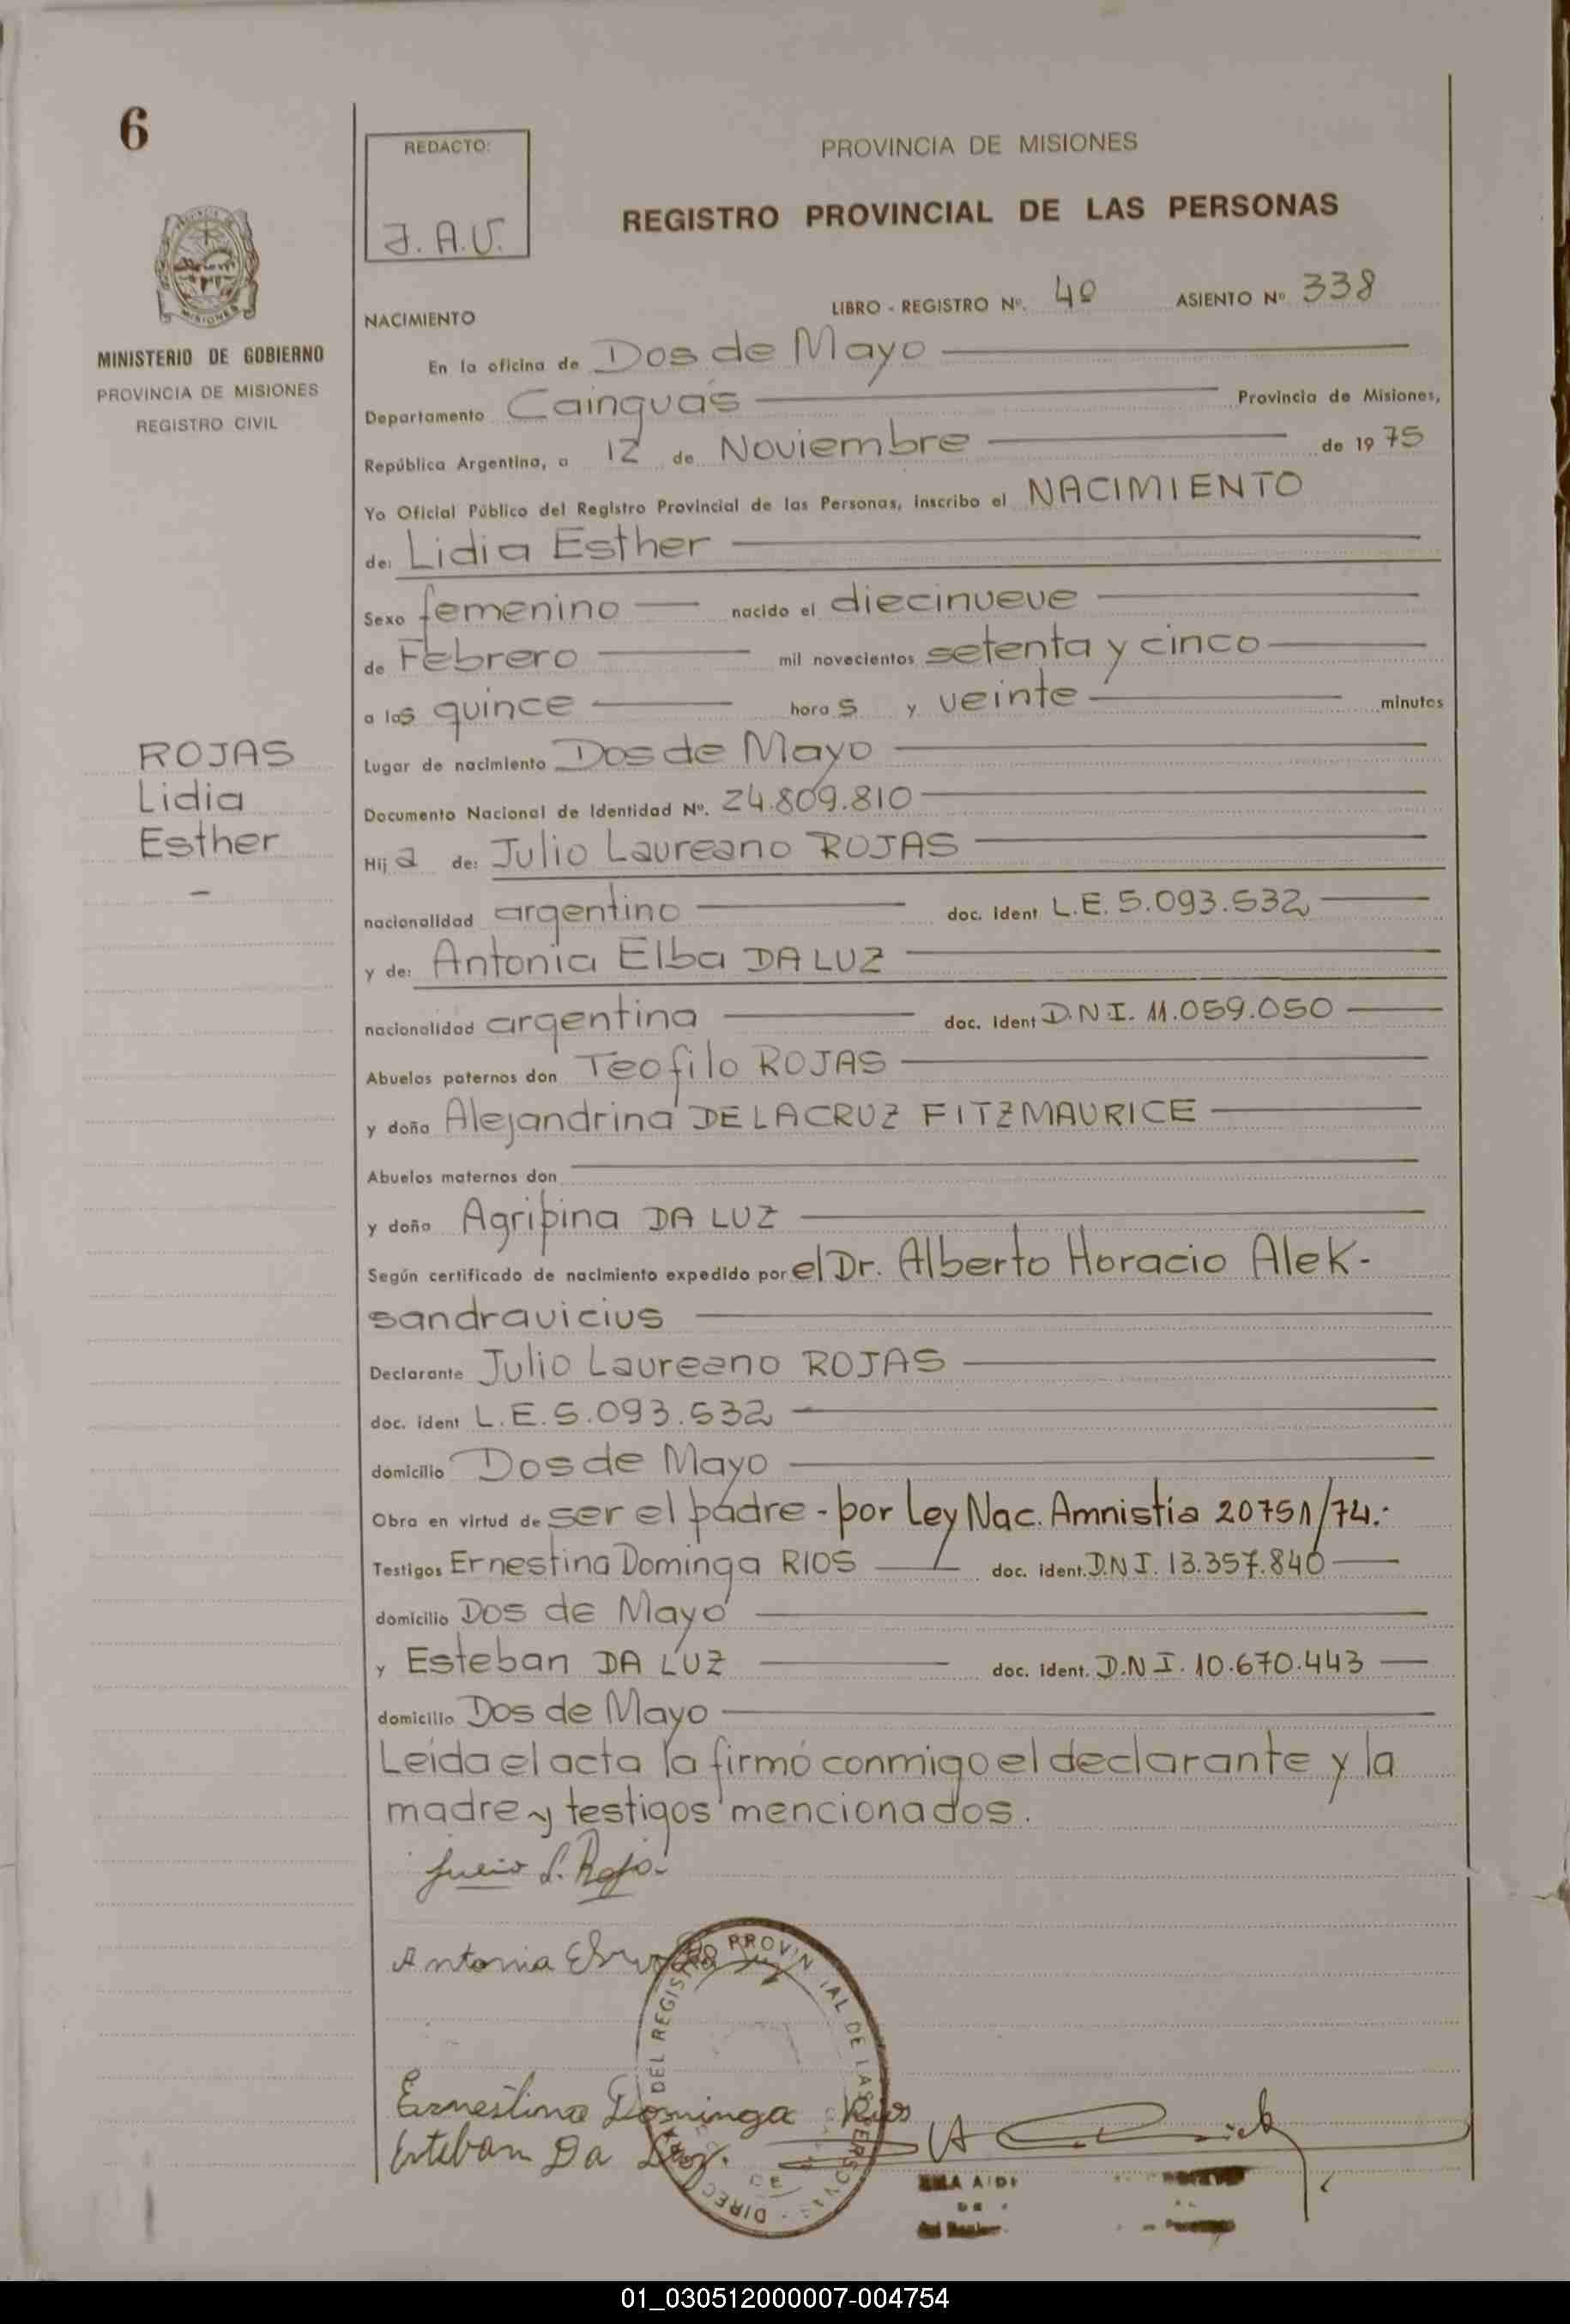 6
REDACTO:
J.A.V.
PROVINCIA DE MISIONES
REGISTRO PROVINCIAL DE LAS PERSONAS
MISIONES
MINISTERIO DE GOBIERNO
PROVINCIA DE MISIONES
REGISTRO CIVIL
LIBRO - REGISTRO Nº. 4º ASIENTO Nº 338
NACIMIENTO
En la oficina de Dos de Mayo
Departamento Cainguás Provincia de Misiones,
República Argentina, a 12 de Noviembre de 1975
Yo Oficial Público del Registro Provincial de las Personas, inscribo el NACIMIENTO
de: Lidia Esther
Sexo femenino nacido el diecinueve
de Febrero mil novecientos setenta y cinco
a las quince horas y veinte minutos
Lugar de nacimiento Dos de Mayo
ROJAS
Lidia
Esther
Documento Nacional de Identidad Nº. 24.809.810
Hija de: Julio Laureano ROJAS
nacionalidad argentino doc. ident L.E. 5.093.532
y de: Antonia Elba DA LUZ
nacionalidad argentina doc. ident D.N.I. 11.059.050
Abuelos paternos don Teofilo ROJAS
y doña Alejandrina DE LA CRUZ FITZMAURICE
Abuelos maternos don
y doña Agripina DA LUZ
Según certificado de nacimiento expedido por el Dr. Alberto Horacio Alek-
sandravicius
Declarante Julio Laureano ROJAS
doc. ident L.E. 5.093.532
domicilio Dos de Mayo
Obra en virtud de ser el padre - por Ley Nac. Amnistía 20751/74.-
Testigos Ernestina Dominga RIOS doc. ident. D.N.I. 13.357.840
domicilio Dos de Mayo
y Esteban DA LUZ doc. ident. D.N.I. 10.670.443
domicilio Dos de Mayo
Leída el acta la firmó conmigo el declarante y la
madre y testigos mencionados.
Julio L. Rojas
Antonia
DEL REGISTRO PROVINCIAL DE LAS PERSONAS
Ernestina Dominga Rios
Esteban Da Luz.
01_030512000007-004754